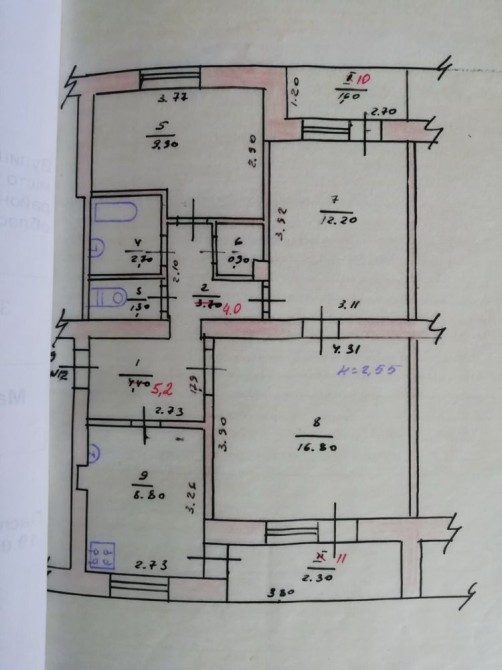 3.77
5
9.90
2.90
1.20
I 10
1.60
2.70
7
12.20
3.92
3.11
4
2.70
2.10
6
0.90
3
1.30
2
3.70 4.0
4.31
н=2,55
1
4.40 5,2
2.73
8
16.80
3.90
9
8.80
3.25
2.73
II 11
2.30
3.80